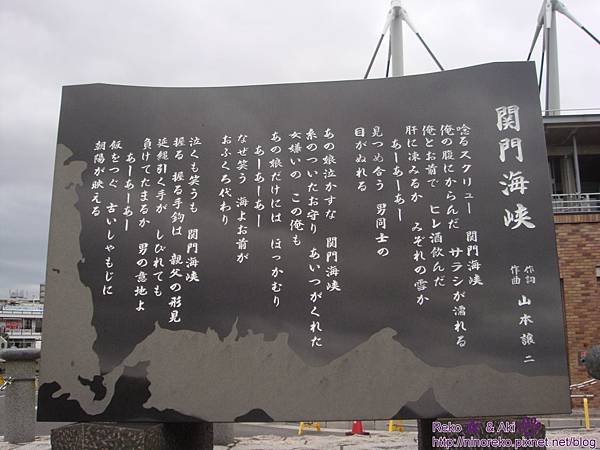 関門海峡
作詞
作曲 山本譲二
唸るスクリュー 関門海峡
俺の腹にからんだ サラシが濡れる
俺とお前で ヒレ酒飲んだ
肝に凍みるか みぞれの雪か
あーあーあー
見つめ合う 男同士の
目がぬれる
あの娘泣かすな 関門海峡
糸のついたお守り あいつがくれた
女嫌いの この俺も
あの娘だけには ほっかむり
あーあーあー
なぜ笑う 海よお前が
おふくろ代わり
泣くも笑うも 関門海峡
握る 握る手鈎は 親父の形見
延縄引く手が しびれても
負けてたまるか 男の意地よ
あーあーあー
飯をつぐ 古いしゃもじに
朝陽が映える
Reko & Aki
http://ninoreko.pixnet.net/blog